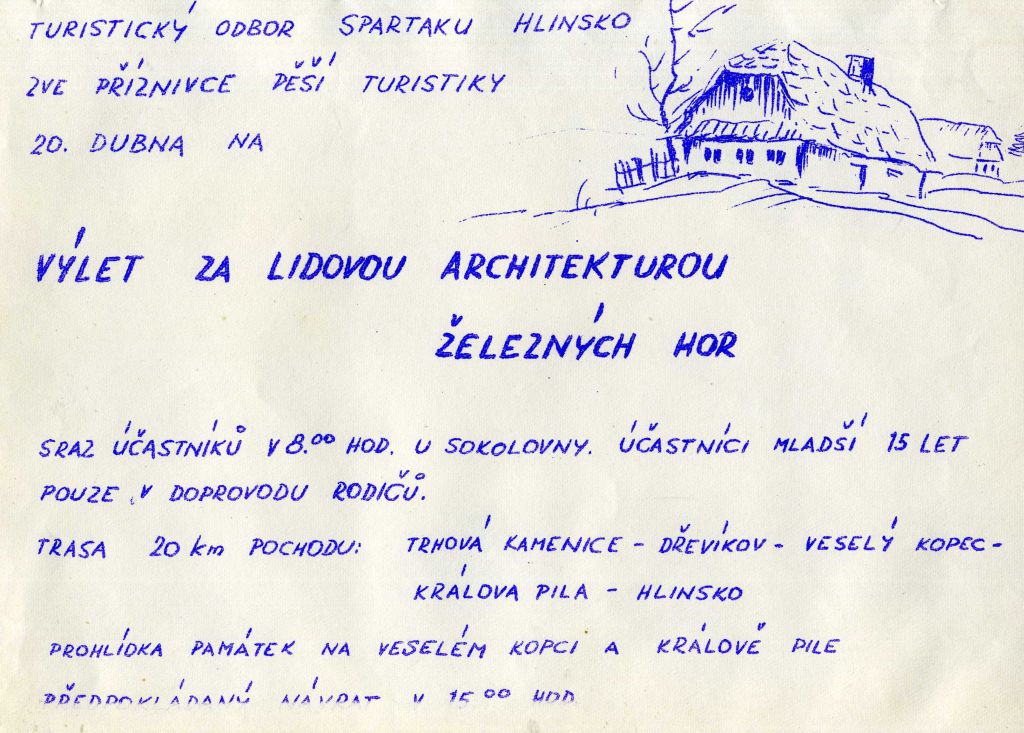 TURISTICKÝ ODBOR SPARTAKU HLINSKO
ZVE PŘÍZNIVCE PĚŠÍ TURISTIKY
20. DUBNA NA
VÝLET ZA LIDOVOU ARCHITEKTUROU
ŽELEZNÝCH HOR
SRAZ ÚČASTNÍKŮ V 8.00 HOD. U SOKOLOVNY. ÚČASTNÍCI MLADŠÍ 15 LET
POUZE V DOPROVODU RODIČŮ.
TRASA 20 km POCHODU: TRHOVÁ KAMENICE - DŘEVÍKOV - VESELÝ KOPEC -
KRÁLOVA PILA - HLINSKO
PROHLÍDKA PAMÁTEK NA VESELÉM KOPCI A KRÁLOVĚ PILE
PŘEDPOKLÁDANÝ NÁVRAT V 15 00 HOD